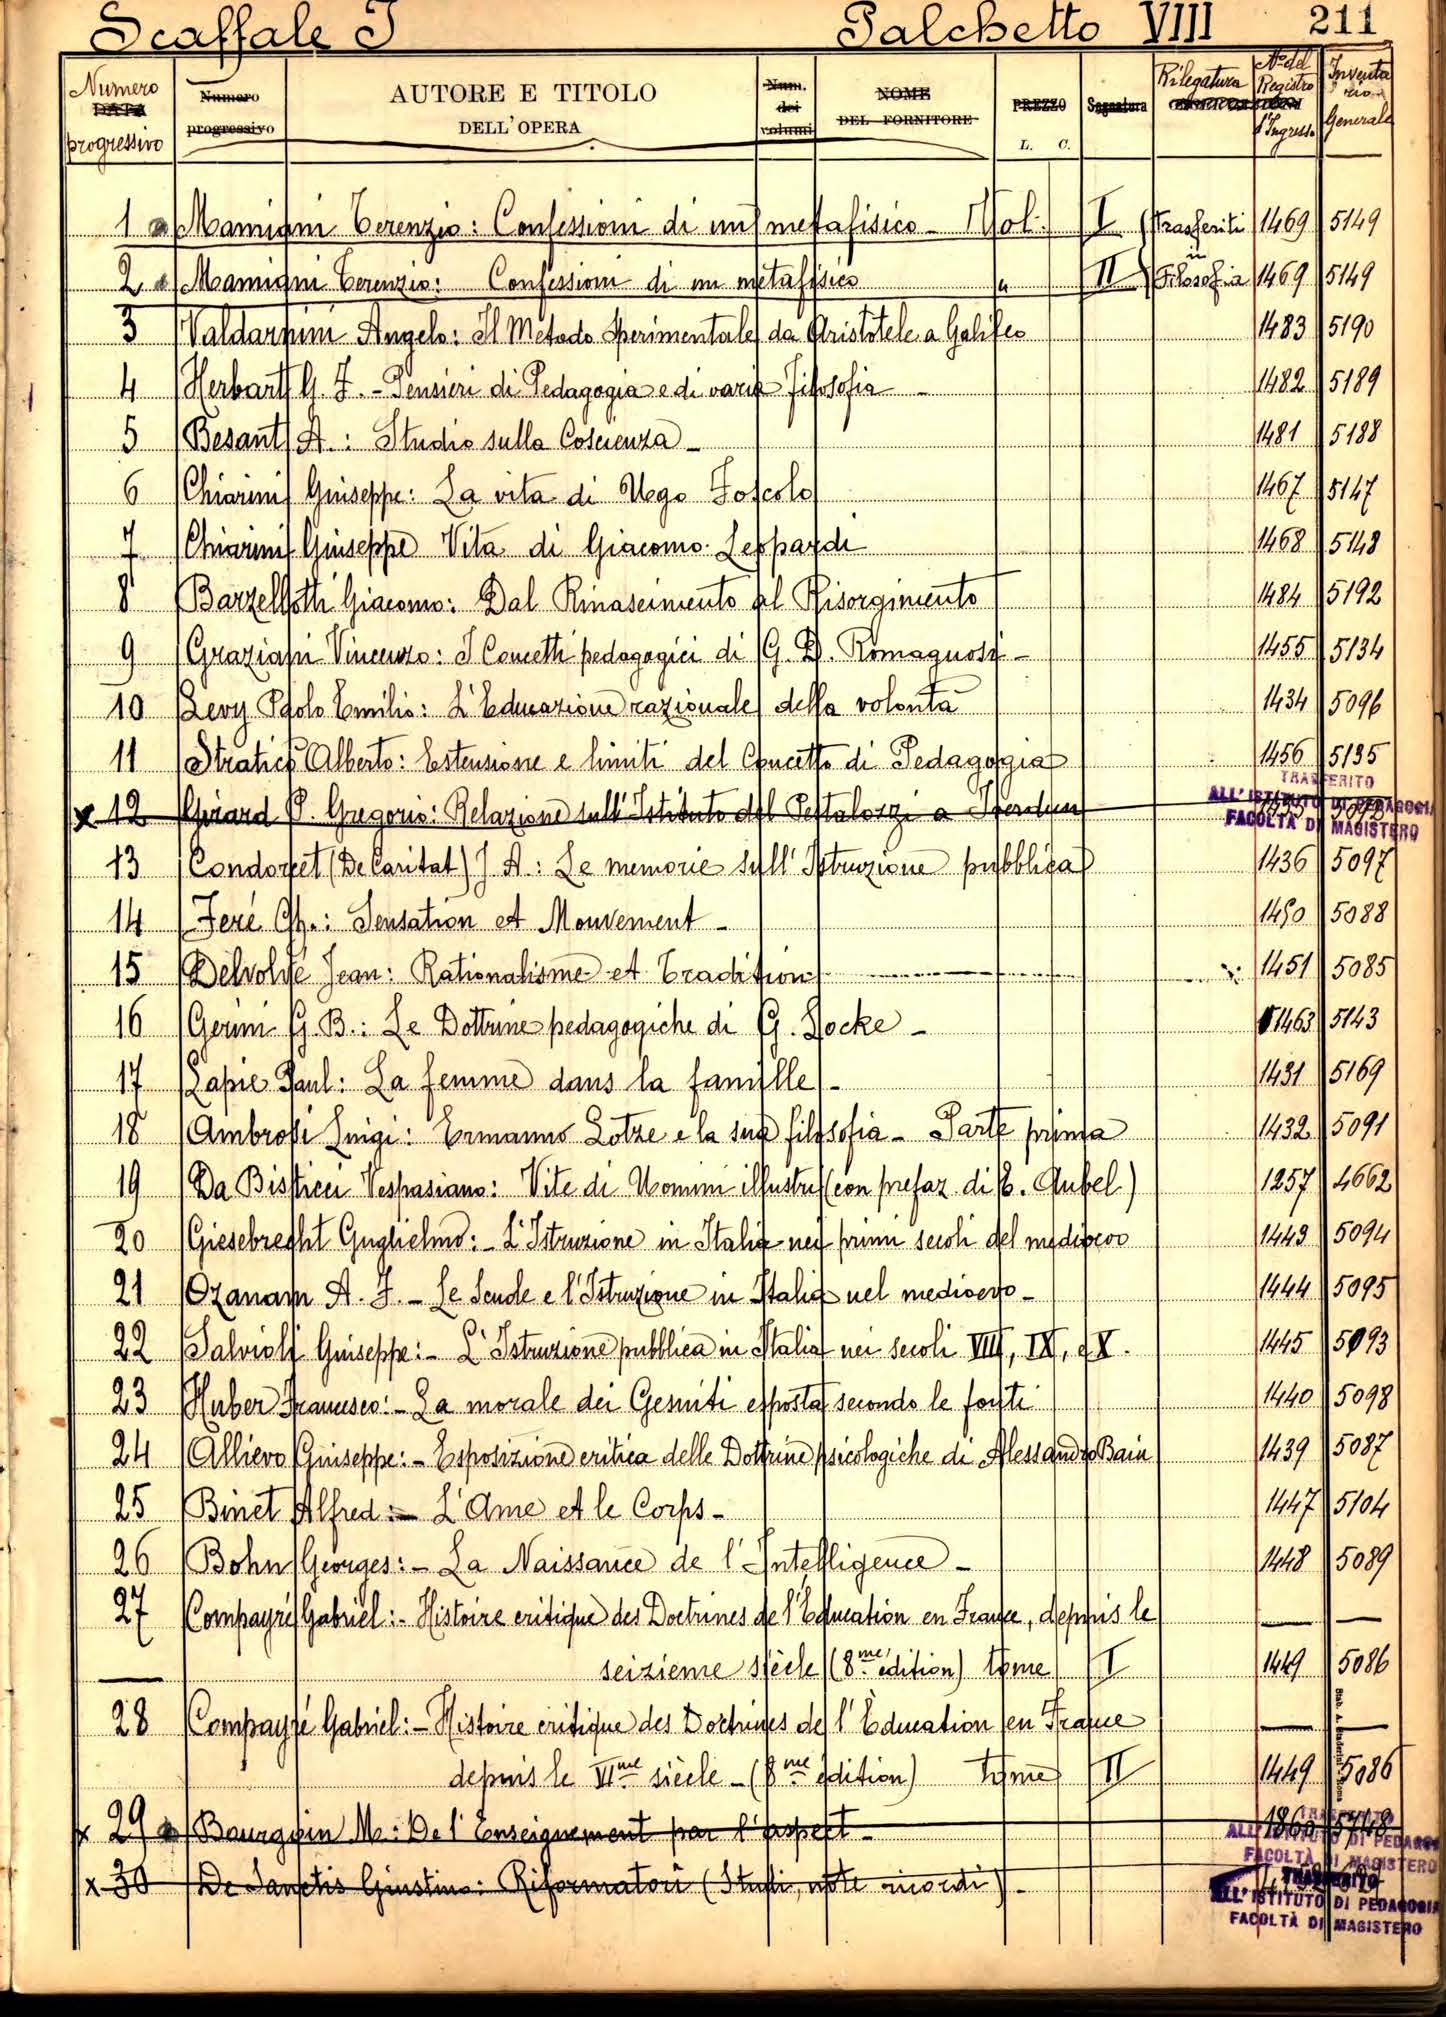 Scaffale I Palchetto VIII 211
Numero DATA progressivo Numero progressivo AUTORE E TITOLO DELL'OPERA Num. dei volumi NOME DEL FORNITORE PREZZO L. C. Segnatura Rilegatura N.º del Registro d'Ingresso Inventario Generale
1 Mamiani Terenzio: Confessioni di un metafisico - Vol. I (Trasferiti 1469 5149
in
2 Mamiani Terenzio: Confessioni di un metafisico " II Filosofia 1469 5149
3 Valdarnini Angelo: Il Metodo sperimentale da Aristotele a Galileo 1483 5190
4 Herbart G. F. - Pensieri di Pedagogia e di varia filosofia - 1482 5189
5 Besant A.: Studio sulla Coscienza - 1481 5188
6 Chiarini Giuseppe: La vita di Ugo Foscolo 1467 5147
7 Chiarini Giuseppe Vita di Giacomo Leopardi 1468 5148
8 Barzellotti Giacomo: Dal Rinascimento al Risorgimento 1484 5192
9 Graziani Vincenzo: I Concetti pedagogici di G. D. Romagnosi - 1455 5134
10 Levy Paolo Emilio: L'Educazione razionale della volontà 1434 5096
11 Straticò Alberto: Estensione e limiti del Concetto di Pedagogia 1456 5135
x 12 Girard P. Gregorio: Relazione sull'Istituto del Pestalozzi a Iverdun
TRASFERITO
ALL'ISTITUTO DI PEDAGOGIA
FACOLTÀ DI MAGISTERO
13 Condorcet (De Caritat) J A.: Le memorie sull'Istruzione pubblica 1436 5097
14 Feré Ch.: Sensation et Mouvement - 1450 5088
15 Delvolvé Jean: Rationalisme et Tradition 1451 5085
16 Gerini G. B.: Le Dottrine pedagogiche di G. Locke - 1463 5143
17 Lapie Paul: La femme dans la famille - 1431 5169
18 Ambrosi Luigi: Ermanno Lotze e la sua filosofia - Parte prima 1432 5091
19 Da Bisticci Vespasiano: Vite di Uomini illustri (con prefaz. di E. Aubel) 1257 4662
20 Giesebrecht Guglielmo: - L'Istruzione in Italia nei primi secoli del medioevo 1443 5094
21 Ozanam A. F. - Le Scuole e l'Istruzione in Italia nel medioevo - 1444 5095
22 Salvioli Giuseppe: - L'Istruzione pubblica in Italia nei secoli VIII, IX, e X. 1445 5093
23 Huber Francesco: - La morale dei Gesuiti esposta secondo le fonti 1440 5098
24 Allievo Giuseppe: - Esposizione critica delle Dottrine psicologiche di Alessandro Bain 1439 5087
25 Binet Alfred: - L'Ame et le Corps - 1447 5104
26 Bohn Georges: - La Naissance de l'Intelligence - 1448 5089
27 Compayré Gabriel: - Histoire critique des Doctrines de l'Education en France, depuis le — —
— seizieme siècle (8me édition) tome I 1449 5086
28 Compayré Gabriel: - Histoire critique des Doctrines de l'Éducation en France — —
depuis le VIme siècle - (8me édition) tome II 1449 5086
x 29 Bourgoin M.: De l'Enseignement par l'aspect - 1860 5748
TRASFERITO
ALL'ISTITUTO DI PEDAGOGIA
FACOLTÀ DI MAGISTERO
x 30 De Sanctis Giustino: Riformatori (Studi, note ricordi) -
TRASFERITO
ALL'ISTITUTO DI PEDAGOGIA
FACOLTÀ DI MAGISTERO